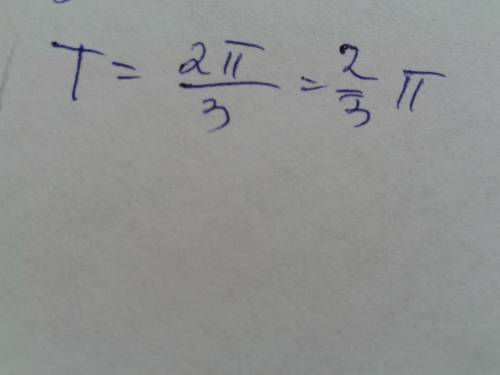 T = \frac{2π}{3} = \frac{2}{3} π